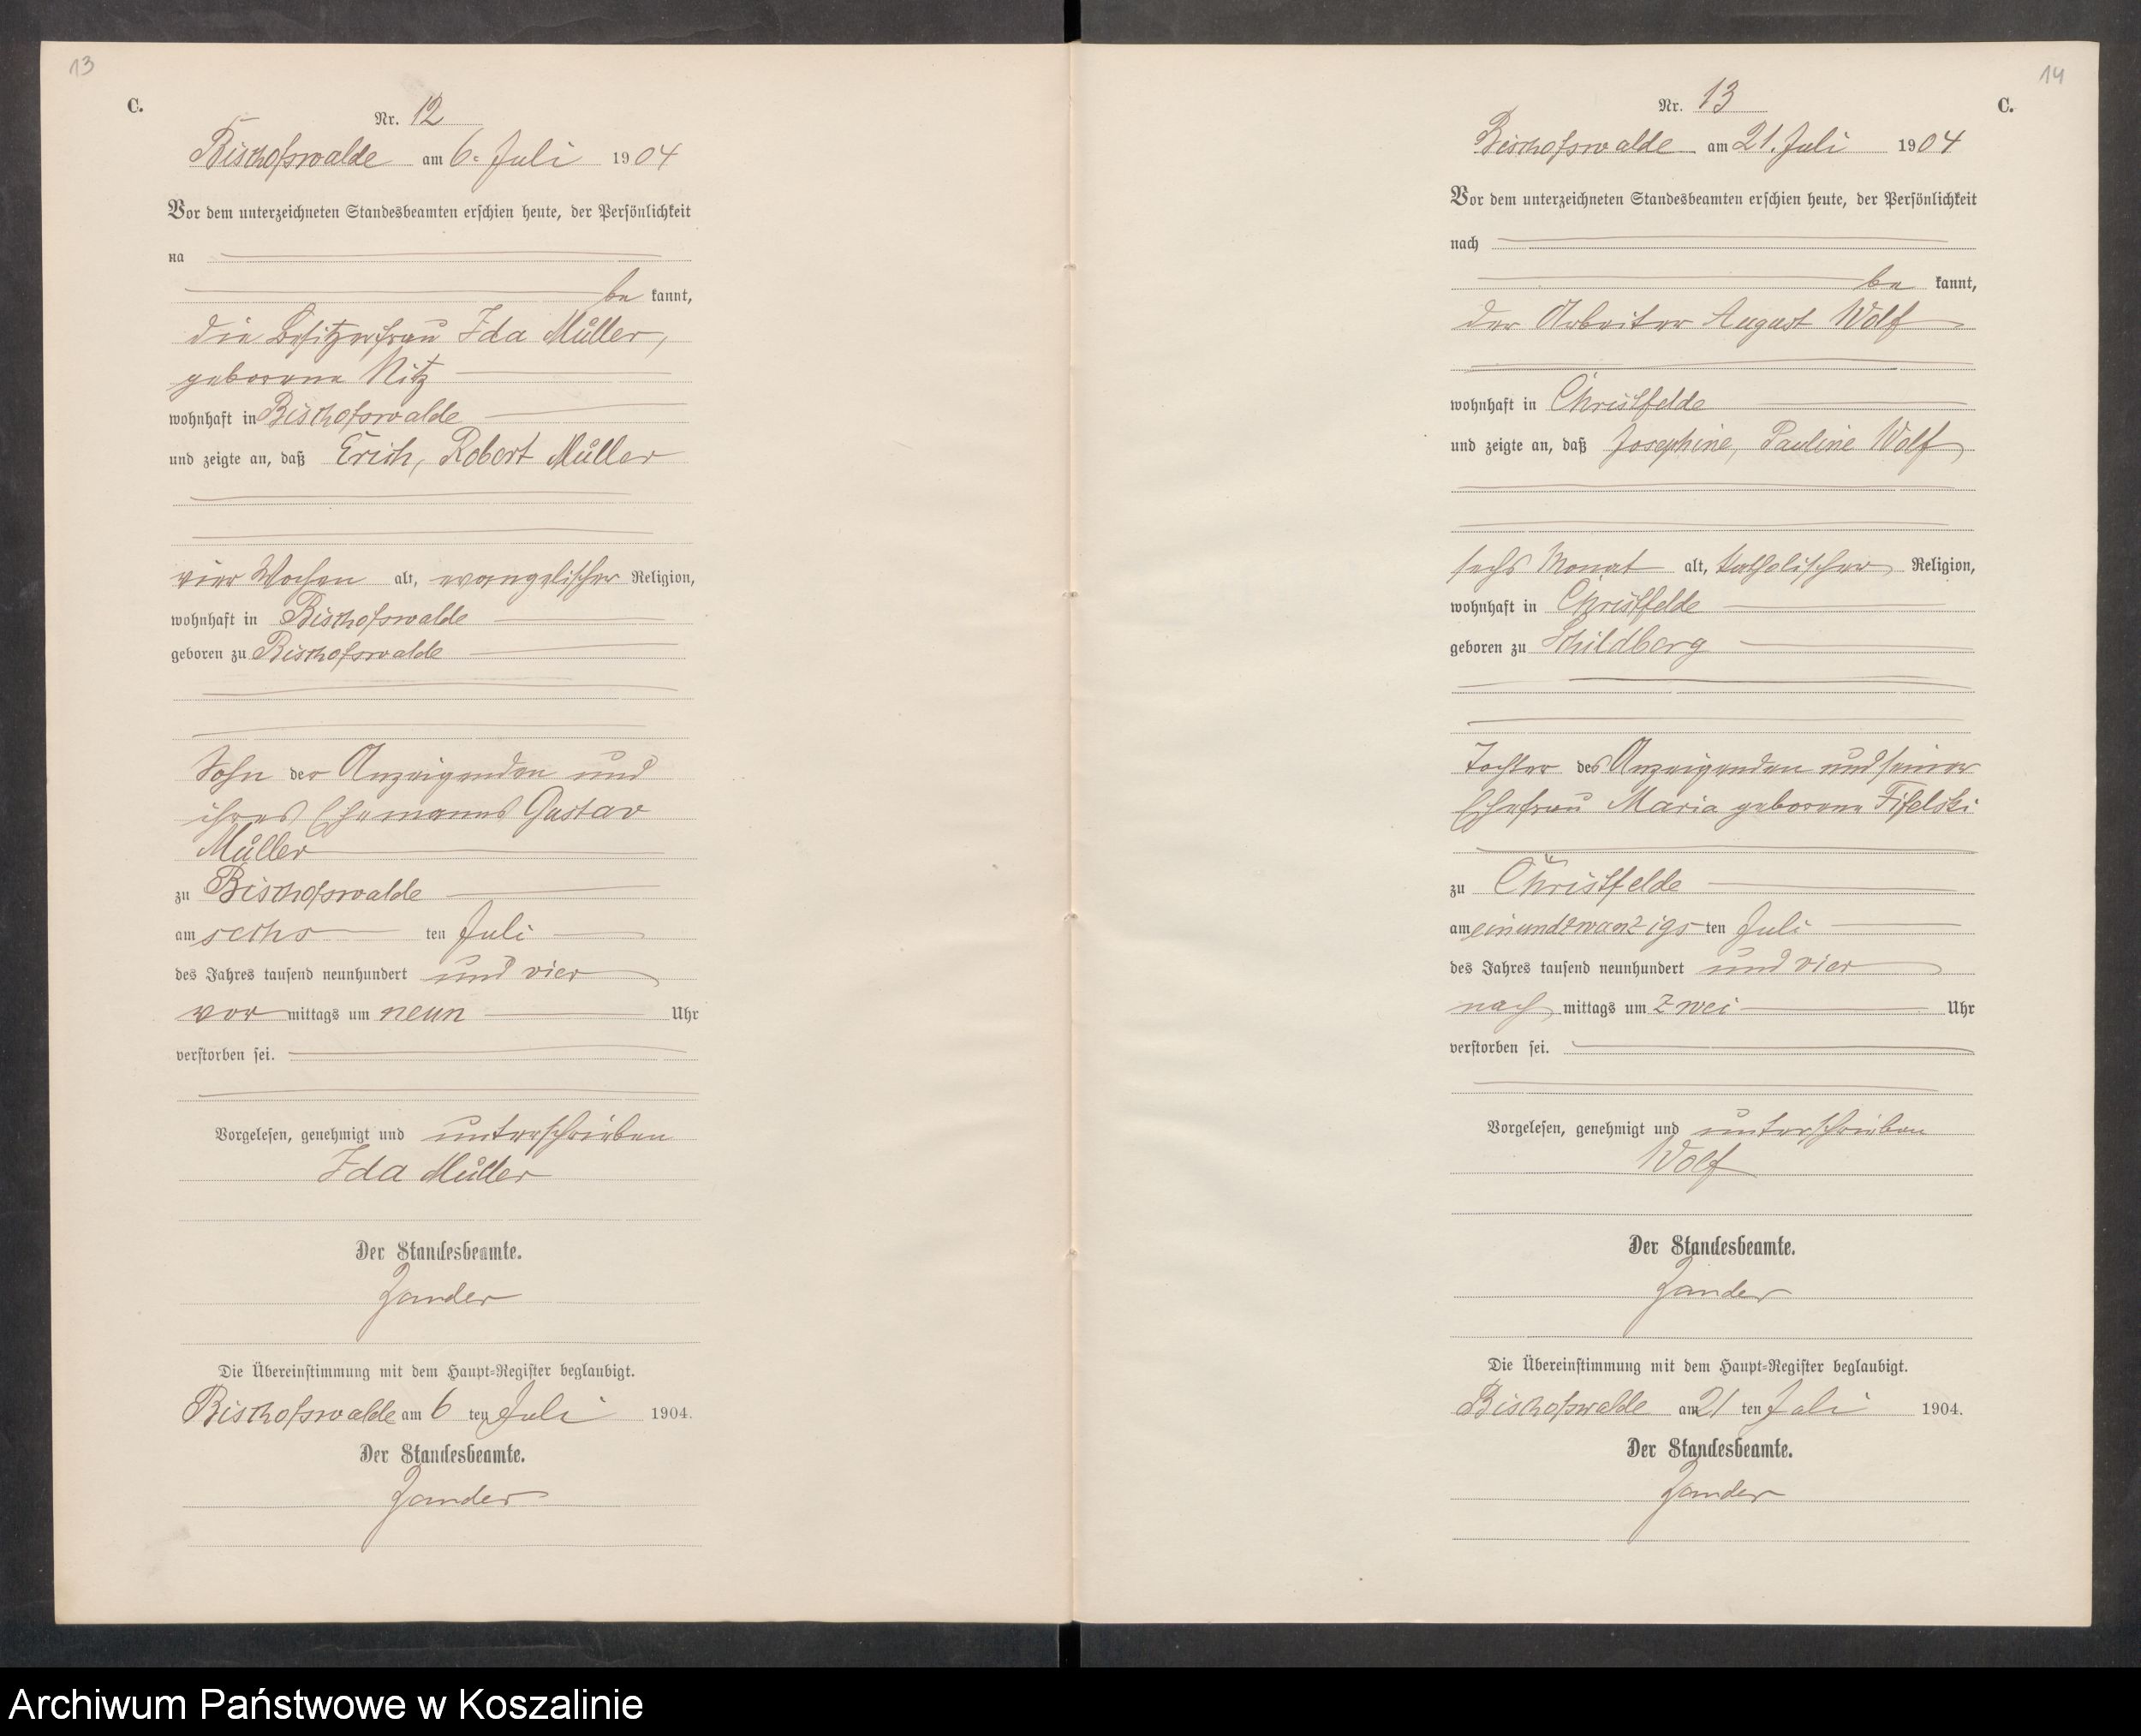 13
C.
Nr. 12
Bischofswalde am 6. Juli 1904
Vor dem unterzeichneten Standesbeamten erschien heute, der Persönlichkeit
na
be kannt,
die Besitzerfrau Ida Müller,
geborene Nitz
wohnhaft in Bischofswalde
und zeigte an, daß Erich, Robert Müller
vier Wochen alt, evangelischer Religion,
wohnhaft in Bischofswalde
geboren zu Bischofswalde
Sohn der Anzeigenden und
ihres Ehemannes Gustav
Müller
zu Bischofswalde
am sechs ten Juli
des Jahres tausend neunhundert und vier
vor mittags um neun Uhr
verstorben sei.
Vorgelesen, genehmigt und unterschrieben
Ida Müller
Der Standesbeamte.
Zander
Die Übereinstimmung mit dem Haupt-Register beglaubigt.
Bischofswalde am 6 ten Juli 1904.
Der Standesbeamte.
Zander
14
C.
Nr. 13
Bischofswalde am 21. Juli 1904
Vor dem unterzeichneten Standesbeamten erschien heute, der Persönlichkeit
nach
be kannt,
der Arbeiter August Wolf
wohnhaft in Christfelde
und zeigte an, daß Josephine, Pauline Wolf
sechs Monat alt, katholischer Religion,
wohnhaft in Christfelde
geboren zu Schildberg
Tochter des Anzeigenden und seiner
Ehefrau Maria geborene Fifelski
zu Christfelde
am einundzwanzigs ten Juli
des Jahres tausend neunhundert und vier
nach mittags um zwei Uhr
verstorben sei.
Vorgelesen, genehmigt und unterschrieben
Wolf
Der Standesbeamte.
Zander
Die Übereinstimmung mit dem Haupt-Register beglaubigt.
Bischofswalde am 21 ten Juli 1904.
Der Standesbeamte.
Zander
Archiwum Państwowe w Koszalinie